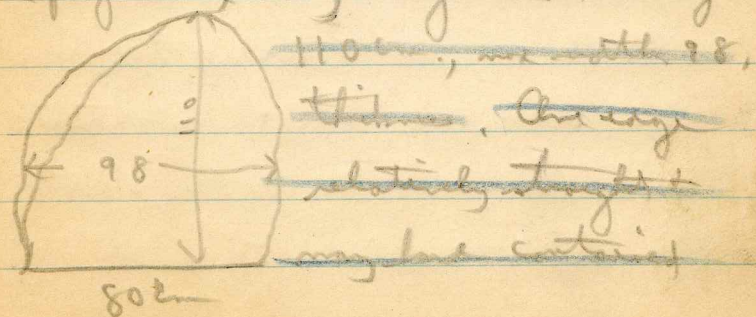 110 cm., max width 98,
thickness. One edge
relatively straight +
may have contained
110
98
80 cm